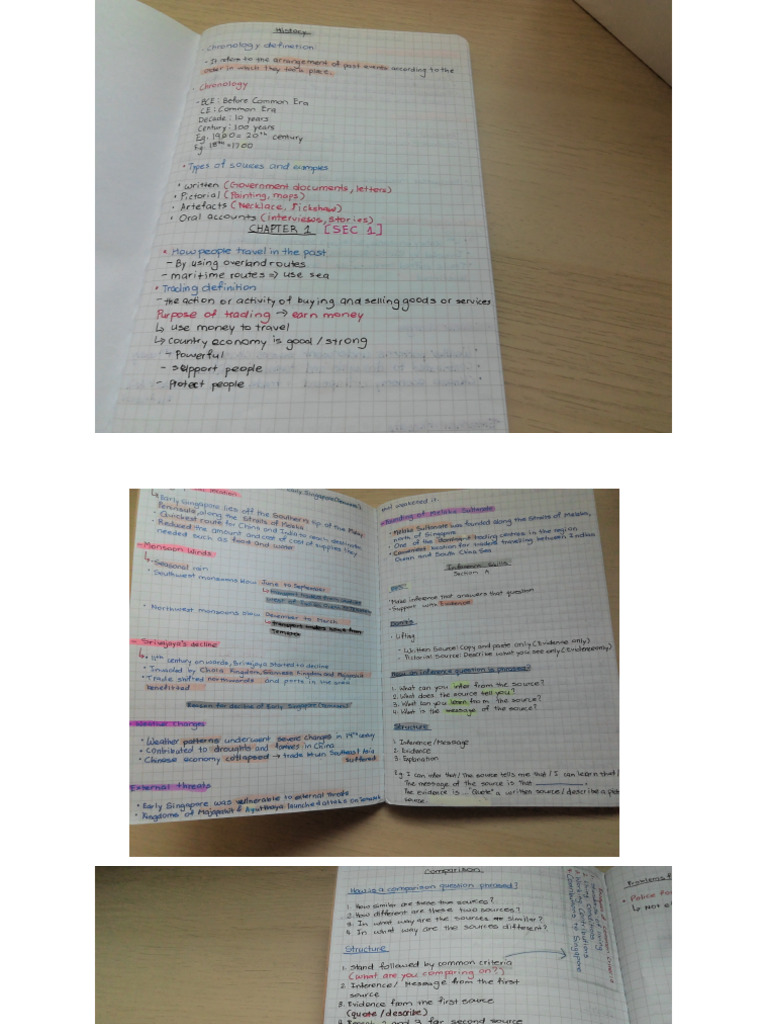 History
· Chronology definition
· It refers to the arrangement of past events according to the
order in which they took place.
· Chronology
- BCE: Before Common Era
CE: Common Era
Decade: 10 years
Century: 100 years
Eg. 1900 = 20th century
Eg. 18th = 1700
· Types of sources and examples
· Written (Government documents, letters)
· Pictorial (Painting, maps)
· Artefacts (Necklace, Rickshaw)
· Oral accounts (interviews, stories)
CHAPTER 1 [SEC 1]
· How people travel in the past
- By using overland routes
- maritime routes => use sea
· Trading definition
- the action or activity of buying and selling goods or services
Purpose of trading → earn money
↳ use money to travel
↳ country economy is good / strong
↳ Powerful
- support people
- protect people
Early Singapore (Temasek)
↳ Early Singapore lies off the Southern tip of the Malay
Peninsula, along the Straits of Melaka
· Quickest route for China and India to reach
· Reduced the amount and cost of supplies they
needed such as food and water
- Monsoon Winds
↳ Seasonal rain
· Southwest monsoons blow June to September
↳ transport traders from
· Northwest monsoons blow December to March
↳ transport traders from
Temasek
- Srivijaya's decline
↳ 11th century onwards, Srivijaya started to decline
· Invaded by Chola Kingdom, Siamese Kingdom and Majapahit
· Trade shifted northwards and ports in the area
benefitted
Reasons for decline of Early Singapore (Temasek)
- Weather Changes
· Weather patterns underwent severe changes in 14th century
· Contributed to droughts and famines in China
· Chinese economy collapsed → trade btwn Southeast Asia
suffered
External threats
· Early Singapore was vulnerable to external threats
· Kingdoms of Majapahit & Ayutthaya launched attacks on Temasek
that weakened it.
- Founding of Melaka Sultanate
· Melaka Sultanate was founded along the Straits of Melaka,
north of Singapore
· One of the dominant trading centres in the region
· Convenient location for traders travelling between Indian
Ocean and South China Sea
Inference Skills
Section A
· Make inference that answers that question
· Support with Evidence
· Lifting
· Written Source: Copy and paste only (Evidence only)
· Pictorial Source: Describe what you see only (Evidence only)
How an inference question is phrased?
1. What can you infer from the source?
2. What does the source tell you?
3. What can you learn from the source?
4. What is the message of the source?
Structure
1. Inference/Message
2. Evidence
3. Explanation
Eg. I can infer that / the source tells me that / I can learn that /
The message of the source is that
The evidence is... "Quote" a written source / describe a
source
Comparison
How is a comparison question phrased?
1. How similar are these two sources?
2. How different are these two sources?
3. In what way are the sources similar?
4. In what way are the sources different?
Structure
1. Stand followed by common criteria
(What are you comparing on?)
2. Inference / Message from the first
source
3. Evidence from the first source
(quote / describe)
4. Repeat 2 and 3 for second source
to Singapore
Problems
· Police
↳ Not